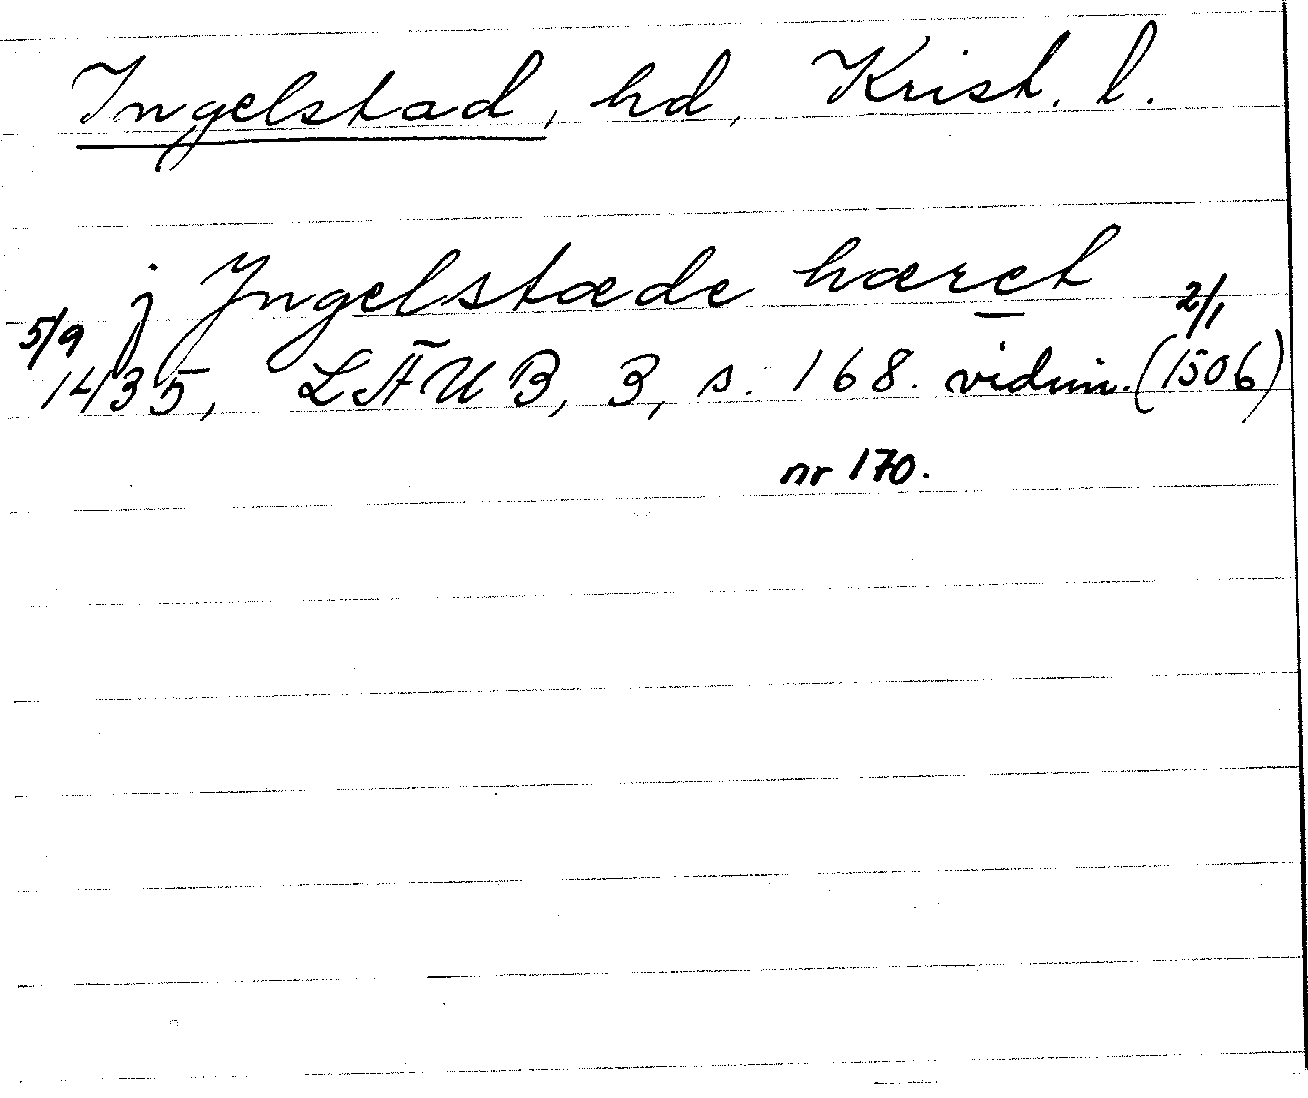 Ingelstad, hd, Krist. l.
j Jngelstæde hæret
5/9 1435, LÄUB, 3, s. 168. vidim. (2/1 1506)
nr 170.